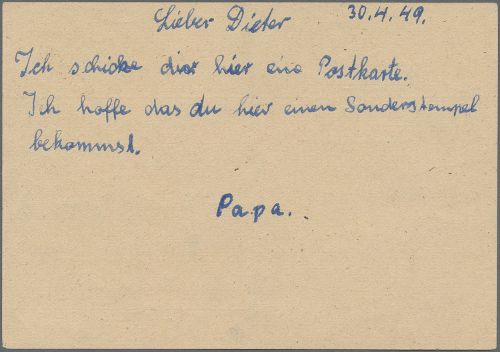 Lieber Dieter 30.4.49.
Ich schicke dir hier eine Postkarte.
Ich hoffe das du hier einen Sonderstempel
bekommst.
Papa.